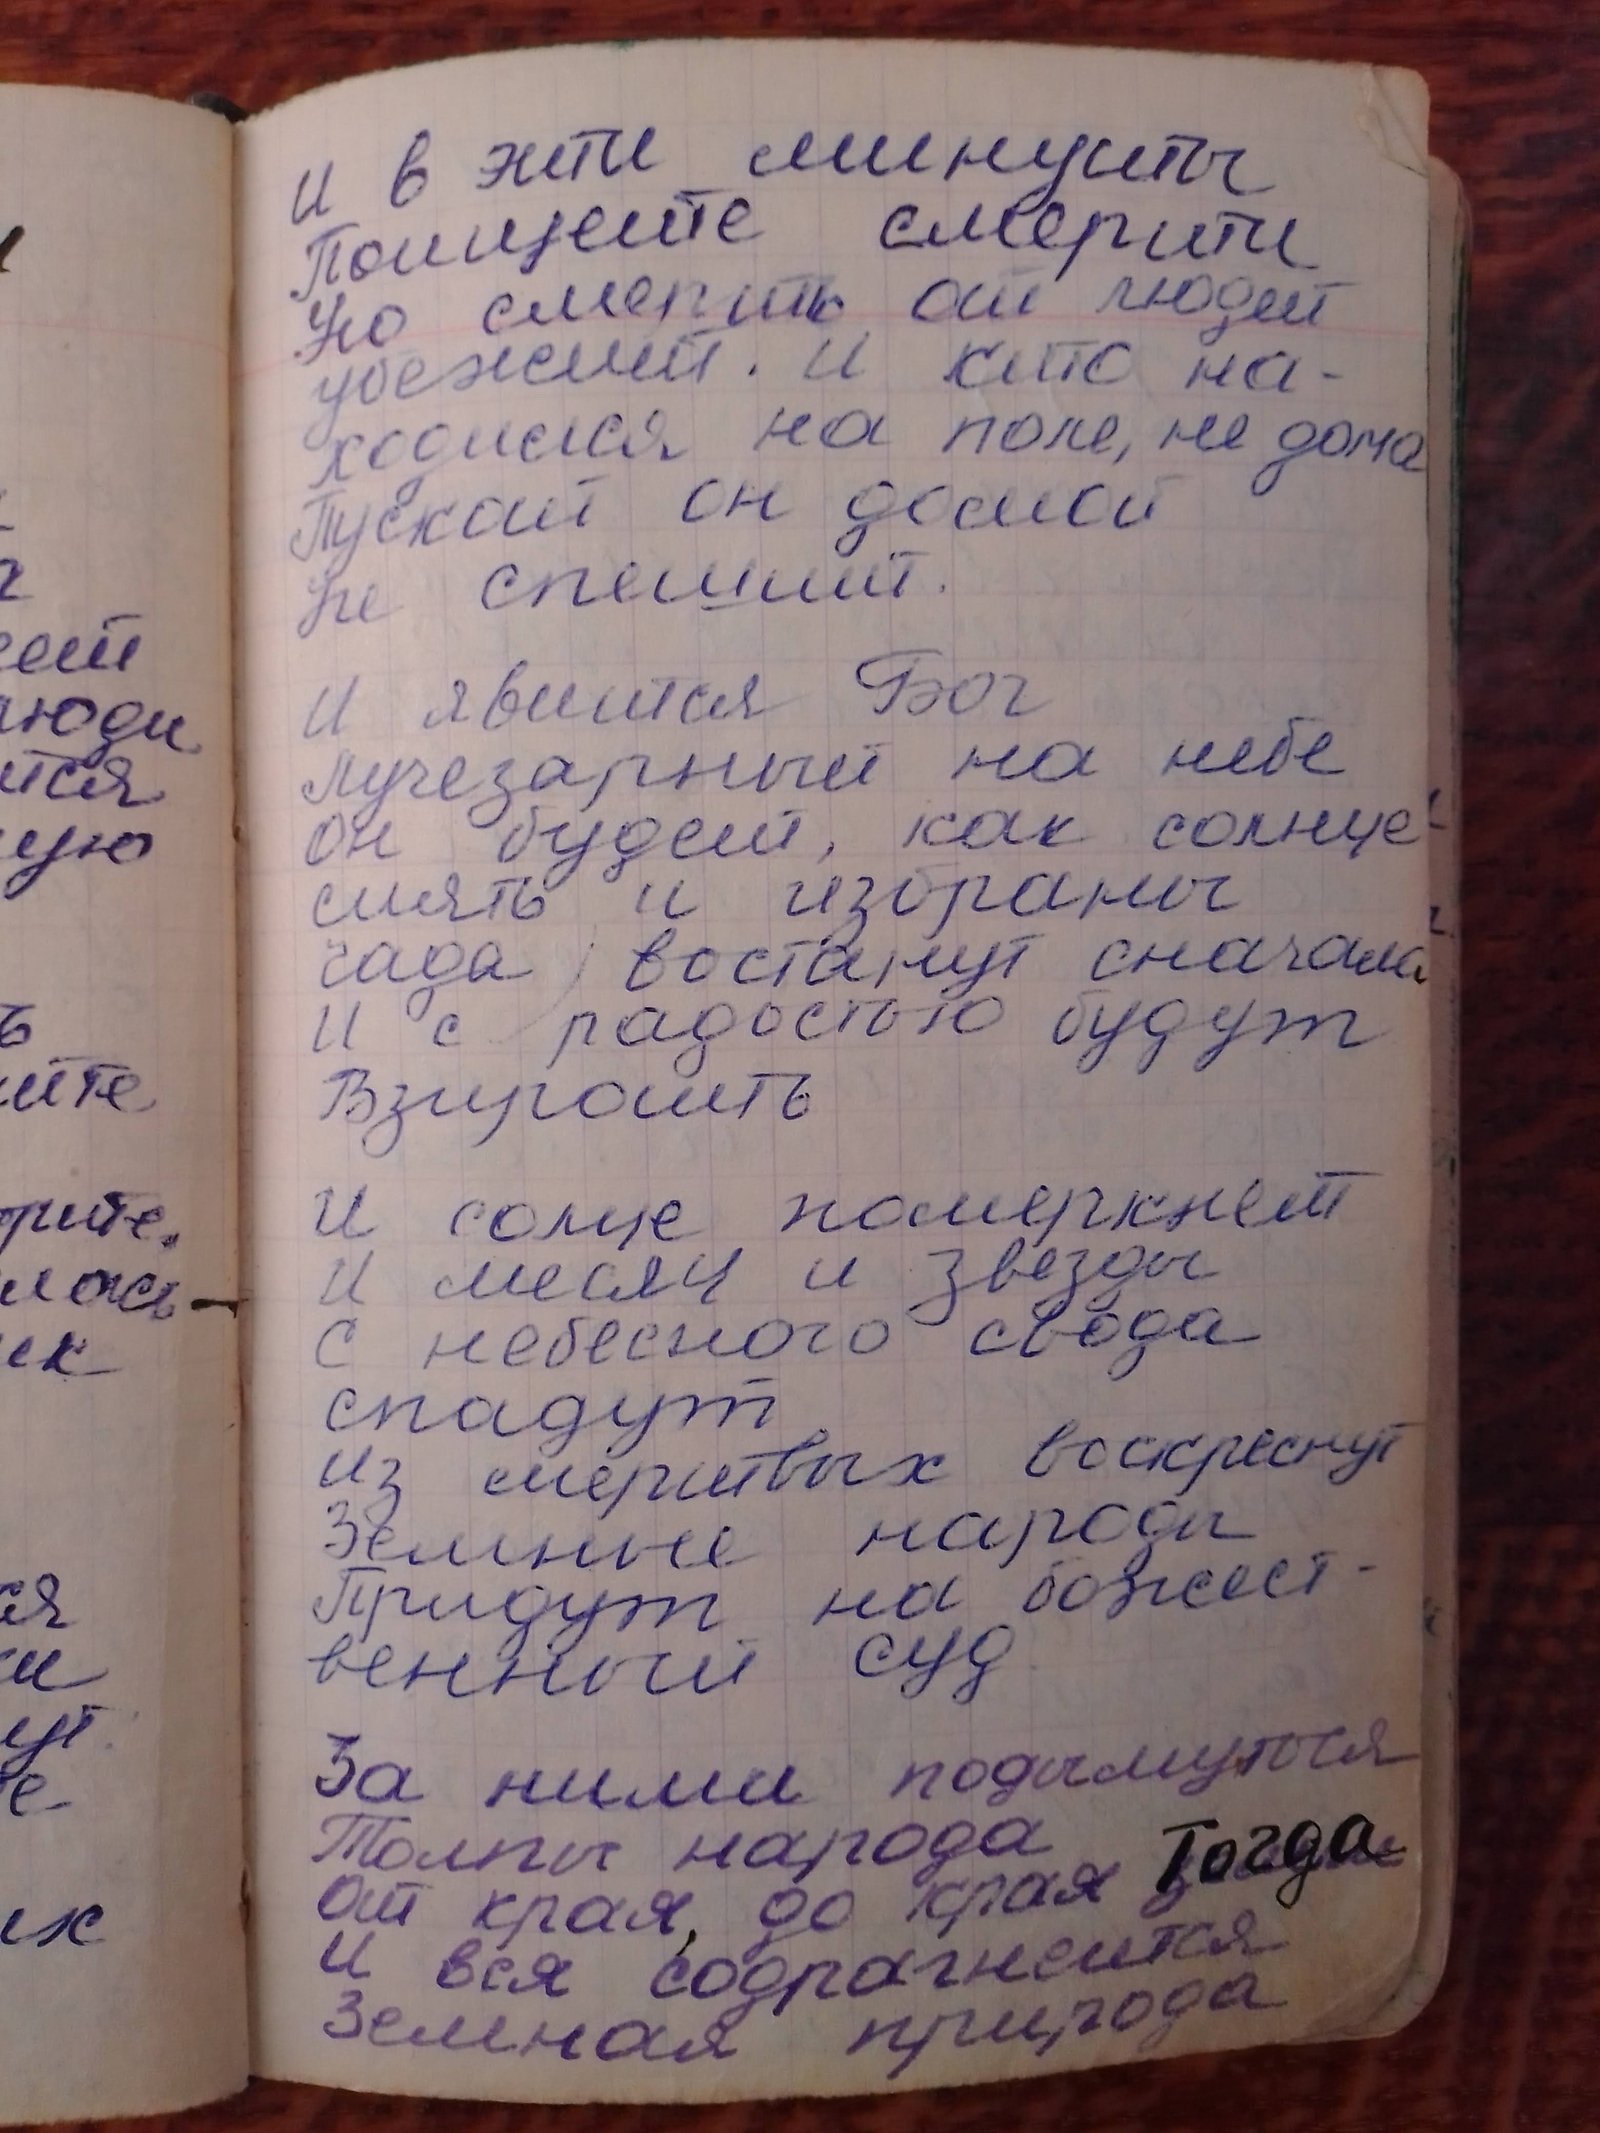 и в эти минуты
Поищете смерти
Но смерть от людей
убежит. И кто на-
ходился на поле, не дома
Пускай он домой
Не спешит.
И явится Бог
лучезарный на небе
он будет, как солнце
сиять и избраны
чада, востанут сначала
И с радостью будут
Взирать
И солце померкнет
И месяц и звезды
С небесного свода
спадут
Из мертвых воскреснут
Земные народы
Придут на божест-
венный суд
За ними подымуться
Толпы народа
От края, до края Тогда
И вся содрагнется
Земная природа
еет
люди
ится
ите